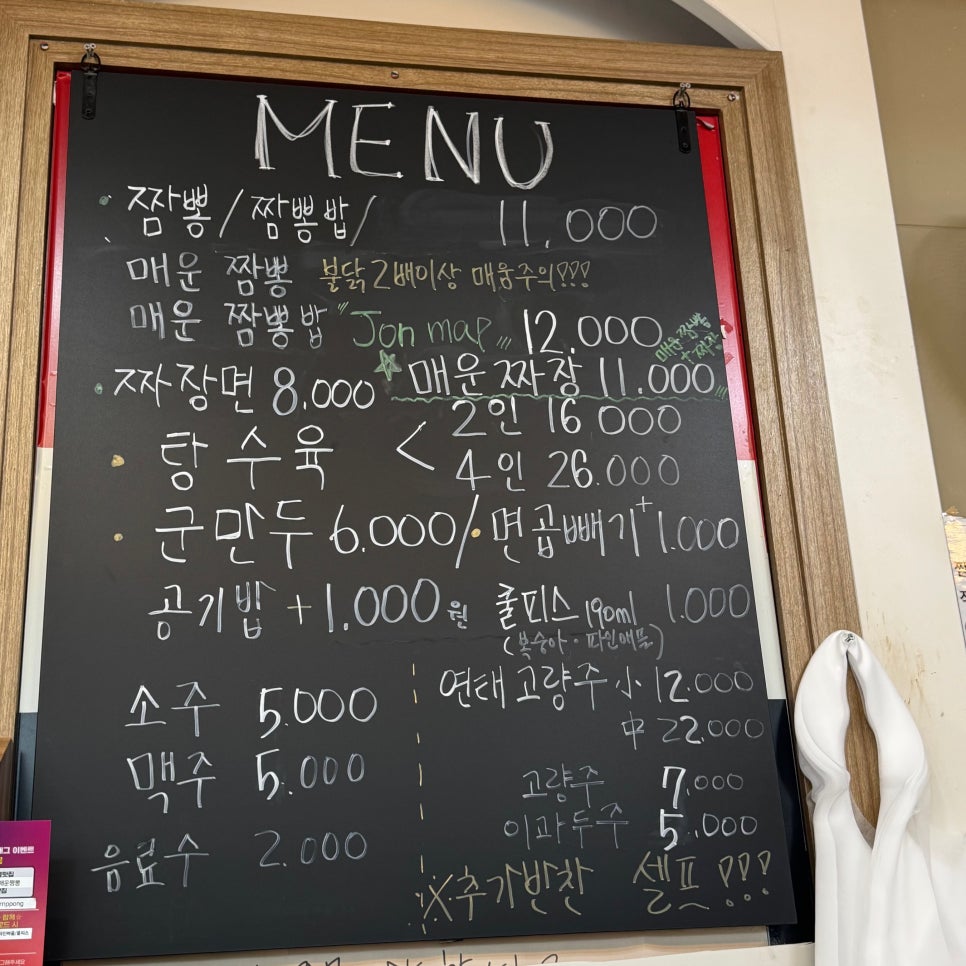 MENU
짬뽕 / 짬뽕밥 / 11.000
매운 짬뽕 불닭 2배이상 매움주의!!!
매운 짬뽕밥 "Jon mat" 12.000
매운짬뽕
+짜장
짜장면 8.000 ☆매운짜장 11.000
탕수육 < 2인 16 000
4인 26.000
군만두 6.000 / 면곱빼기+ 1.000
공기밥 +1.000원 쿨피스 190ml 1.000
(복숭아 · 파인애플)
소주 5.000 연태고량주 小 12.000
中 22.000
맥주 5.000 고량주 7.000
이과두주 5.000
음료수 2.000
※추가반찬 셀프 !!!